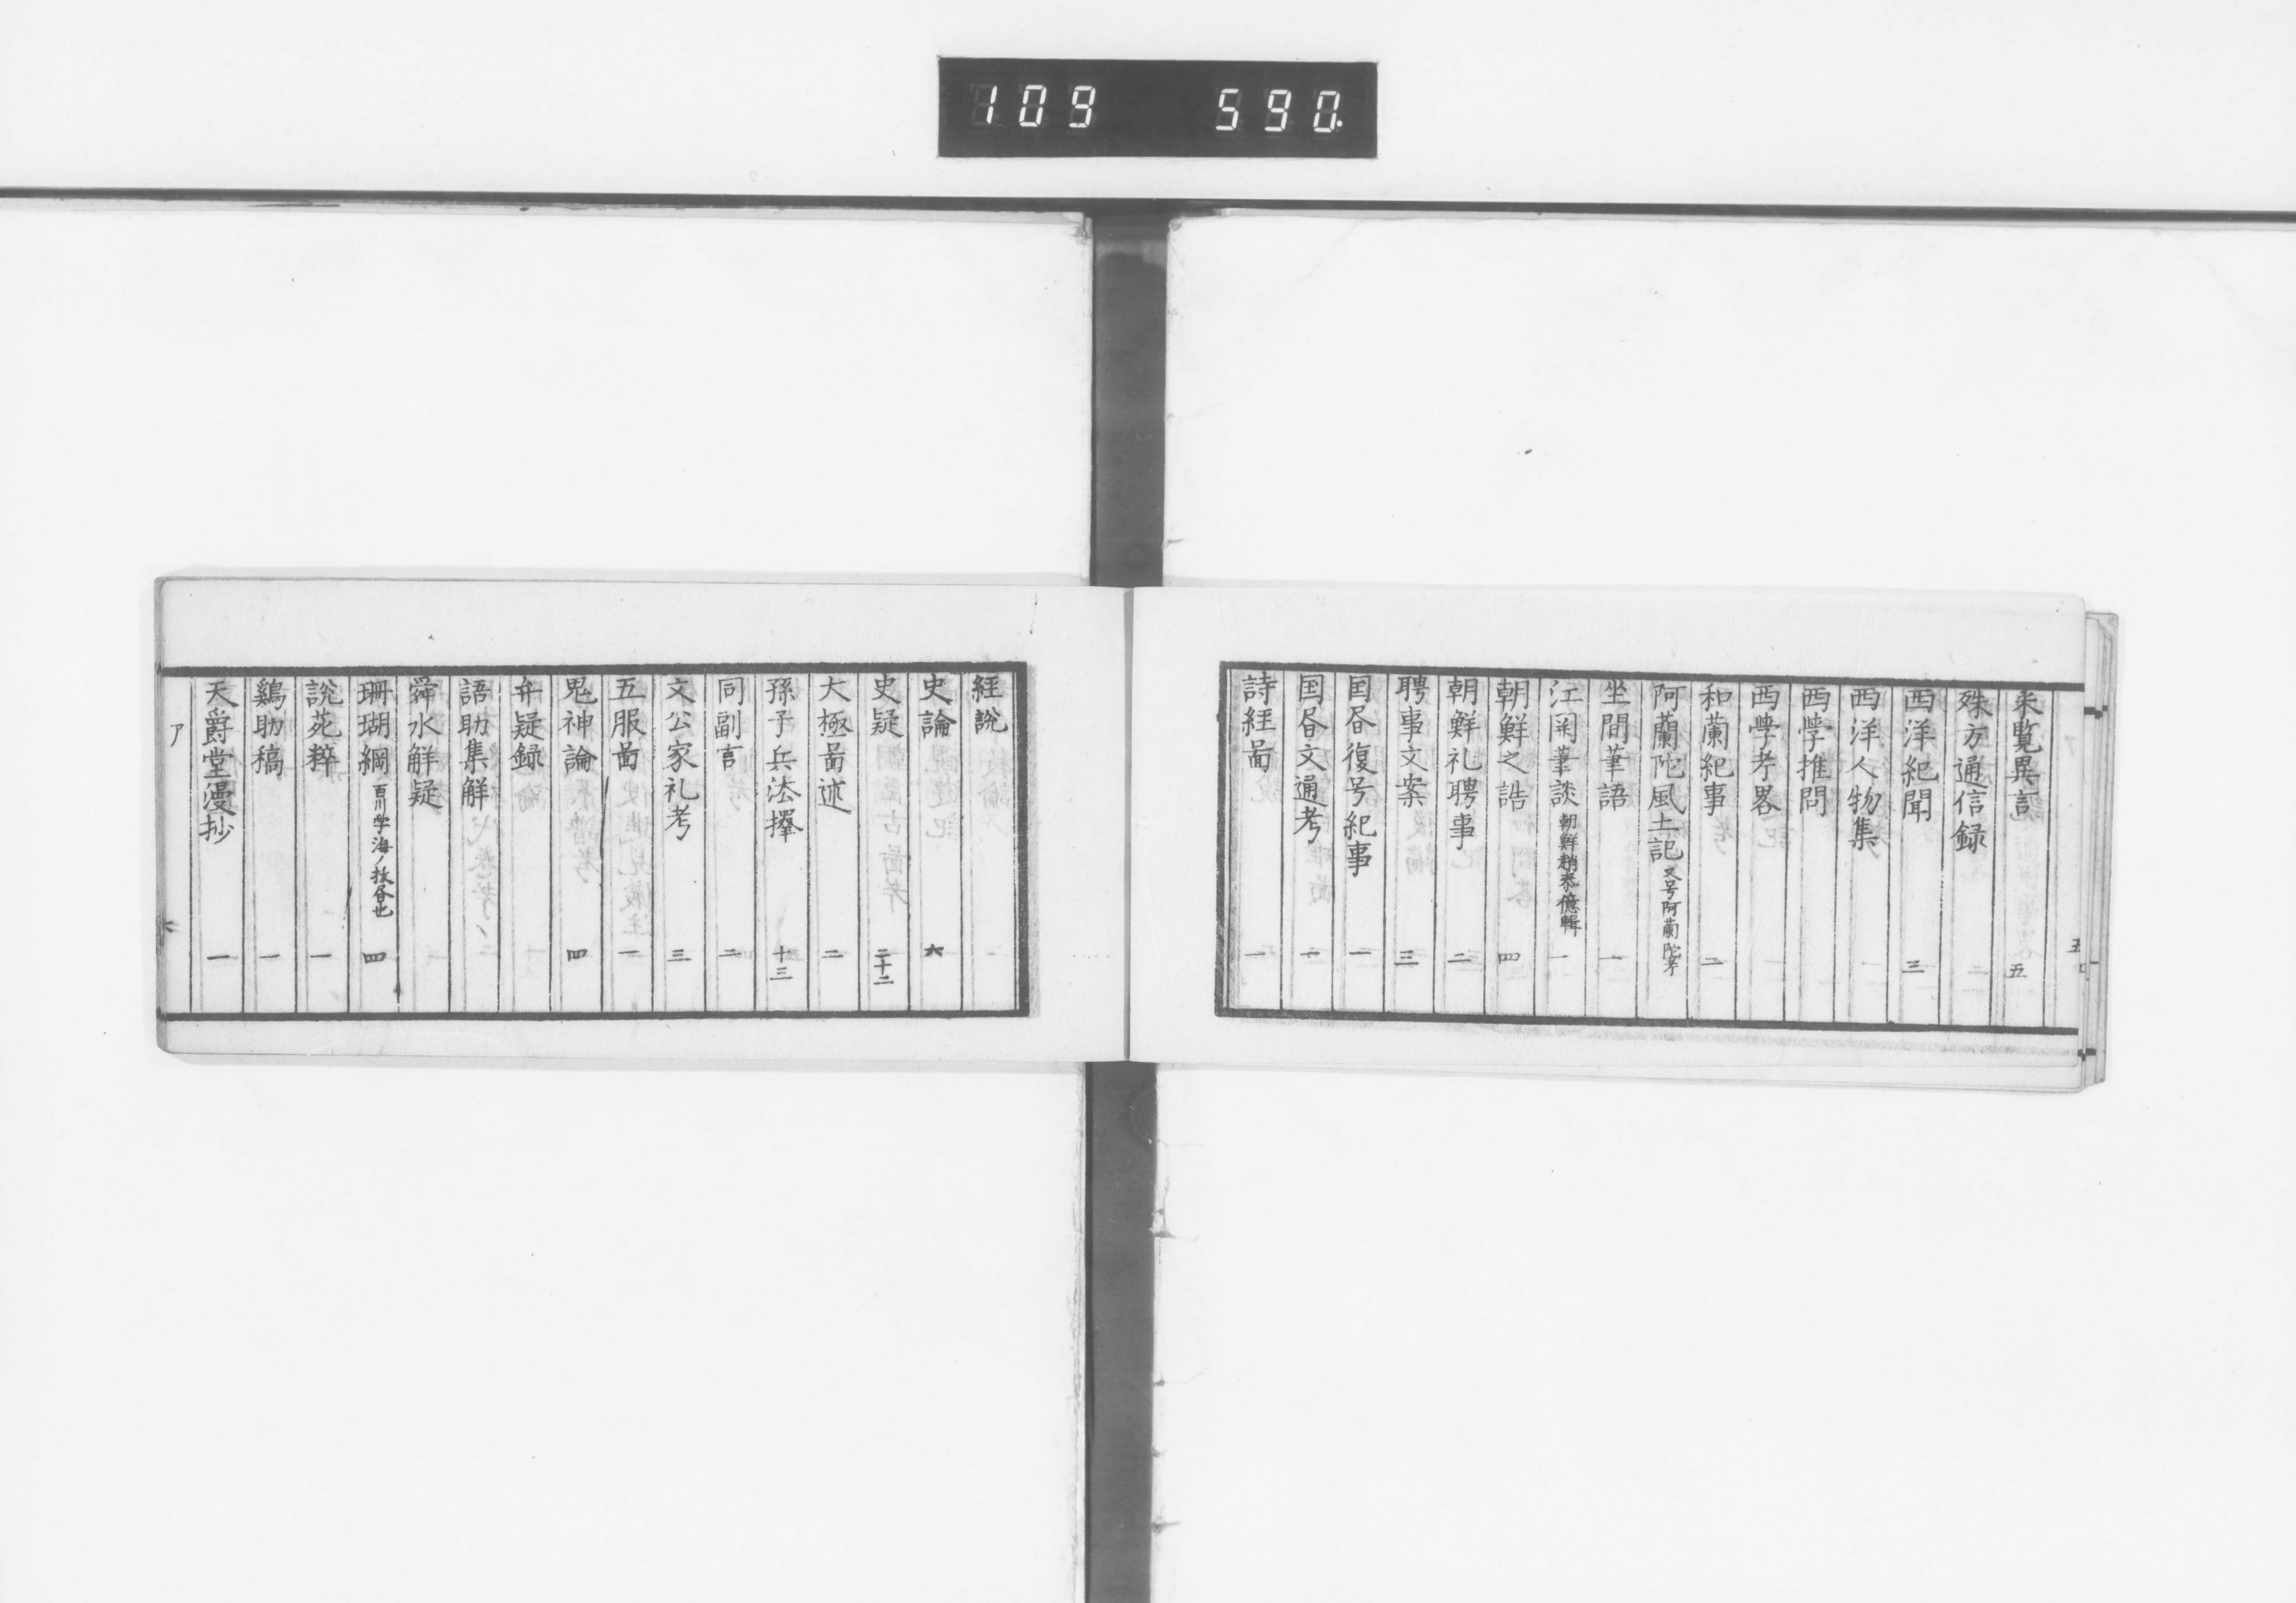 109 590
采覧異言 五
殊方通信録
西洋紀聞 三
西洋人物集
西學推問
西學考畧
和蘭紀事 二
阿蘭陀風土記 又号阿蘭陀考
坐間筆語 一
江関筆談 朝鮮趙泰億輯 一
朝鮮之誥 四
朝鮮礼聘事 二
聘事文案 三
国昏復号紀事 一
国昏文通考 一
詩経啚 一
五
経説
史論 六
史疑 二十二
大極啚述 二
孫子兵法擇 十三
同副言 二
文公家礼考 三
五服啚 一
鬼神論 四
弁疑録
語助集解
舜水解疑
珊瑚綱 百川学海ノ抜昏也 四
説苑粹 一
鷄肋稿 一
天爵堂漫抄 一
ア
六